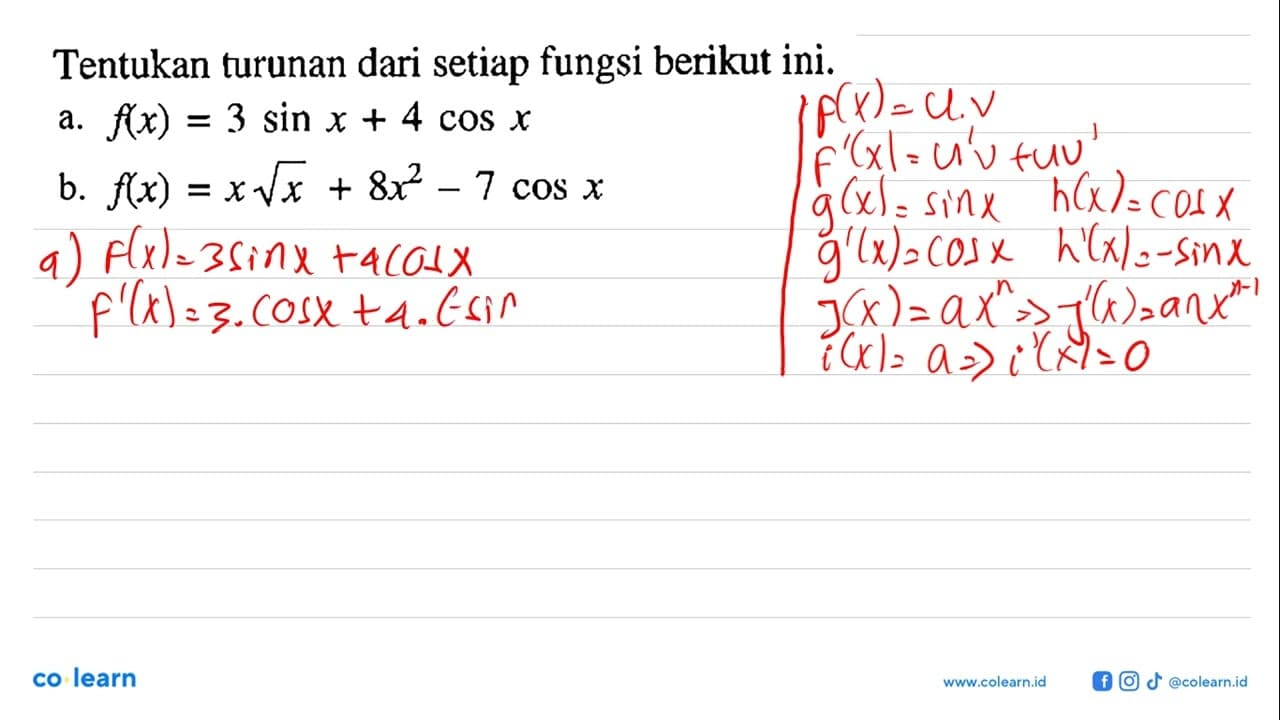 Tentukan turunan dari setiap fungsi berikut ini.
a. f(x) = 3 sin x + 4 cos x
b. f(x) = x√x + 8x² – 7 cos x
a) f(x) = 3 sin x + 4 cos x
f'(x) = 3. cos x + 4. (-sin
f(x) = u.v
f'(x) = u'v + uv'
g(x) = sin x h(x) = cos x
g'(x) = cos x h'(x) = -sin x
j(x) = ax^n => j'(x) = anx^{n-1}
i(x) = a => i'(x) = 0
co learn
www.colearn.id @colearn.id